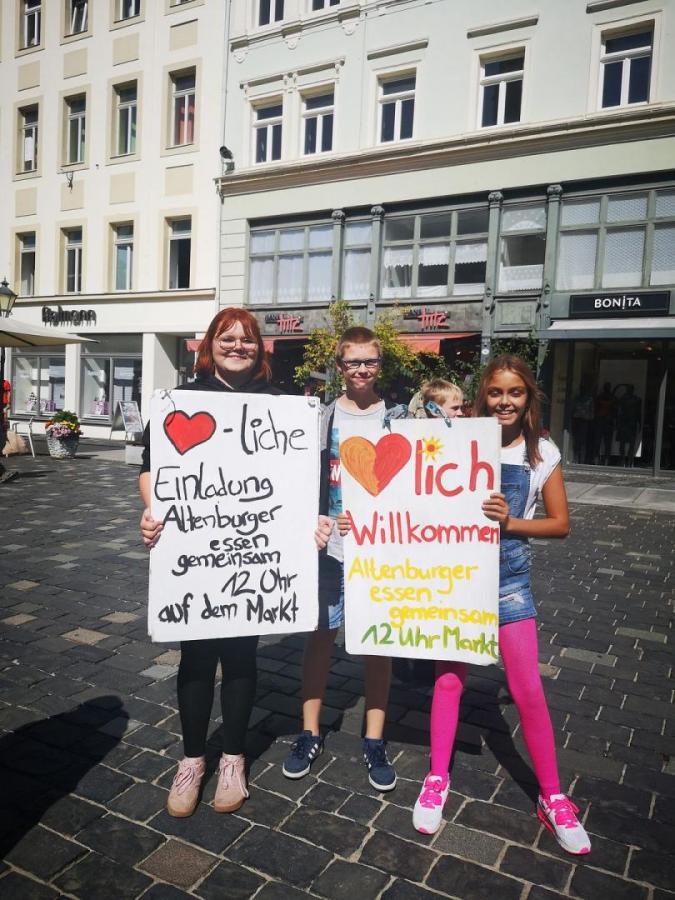 BONITA
-liche
Einladung
Altenburger
essen
gemeinsam
12 Uhr
auf dem Markt
lich
Willkommen
Altenburger
essen
gemeinsam
12 Uhr Markt